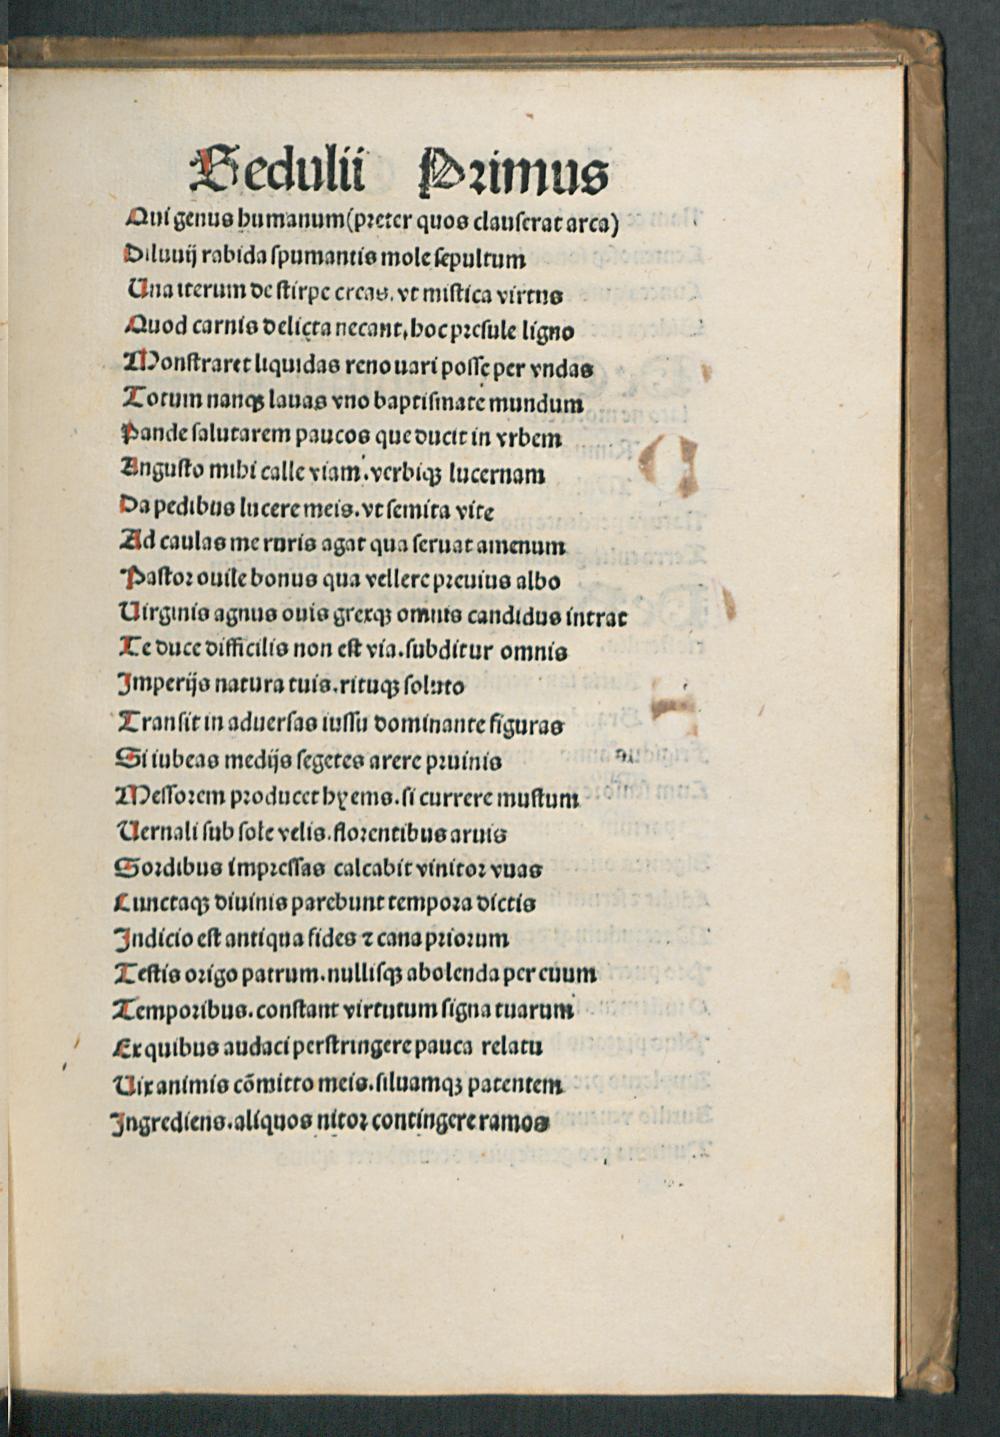 Sedulii Primus
Qui genus humanum (preter quos clauserat arca)
Diluuij rabida spumantis mole sepultum
Una iterum de stirpe creas. vt mistica virtus
Quod carnis delicta necant, hoc presule ligno
Monstraret liquidas renouari posse per vndas
Totum nanqꝫ lauas vno baptismate mundum
Pande salutarem paucos que ducit in vrbem
Angusto mihi calle viam. verbiqꝫ lucernam
Da pedibus lucere meis. vt semita vite
Ad caulas me ruris agat qua seruat amenum
Pastor ouile bonus qua vellere preuius albo
Uirginis agnus ouis grexqꝫ omnis candidus intrat
Te duce difficilis non est via. subditur omnis
Imperijs natura tuis. rituqꝫ soluto
Transit in aduersas iussu dominante figuras
Si iubeas medijs segetes arere pruinis
Messorem producet hyems. si currere mustum
Uernali sub sole velis. florentibus aruis
Sordibus impressas calcabit vinitor vuas
Cunctaqꝫ diuinis parebunt tempora dictis
Indicio est antiqua fides ⁊ cana priorum
Testis origo patrum. nullisqꝫ abolenda per euum
Temporibus. constant virtutum signa tuarum
Ex quibus audaci perstringere pauca relatu
Uix animis cõmitto meis. siluamqꝫ patentem
Ingrediens. aliquos nitor contingere ramos